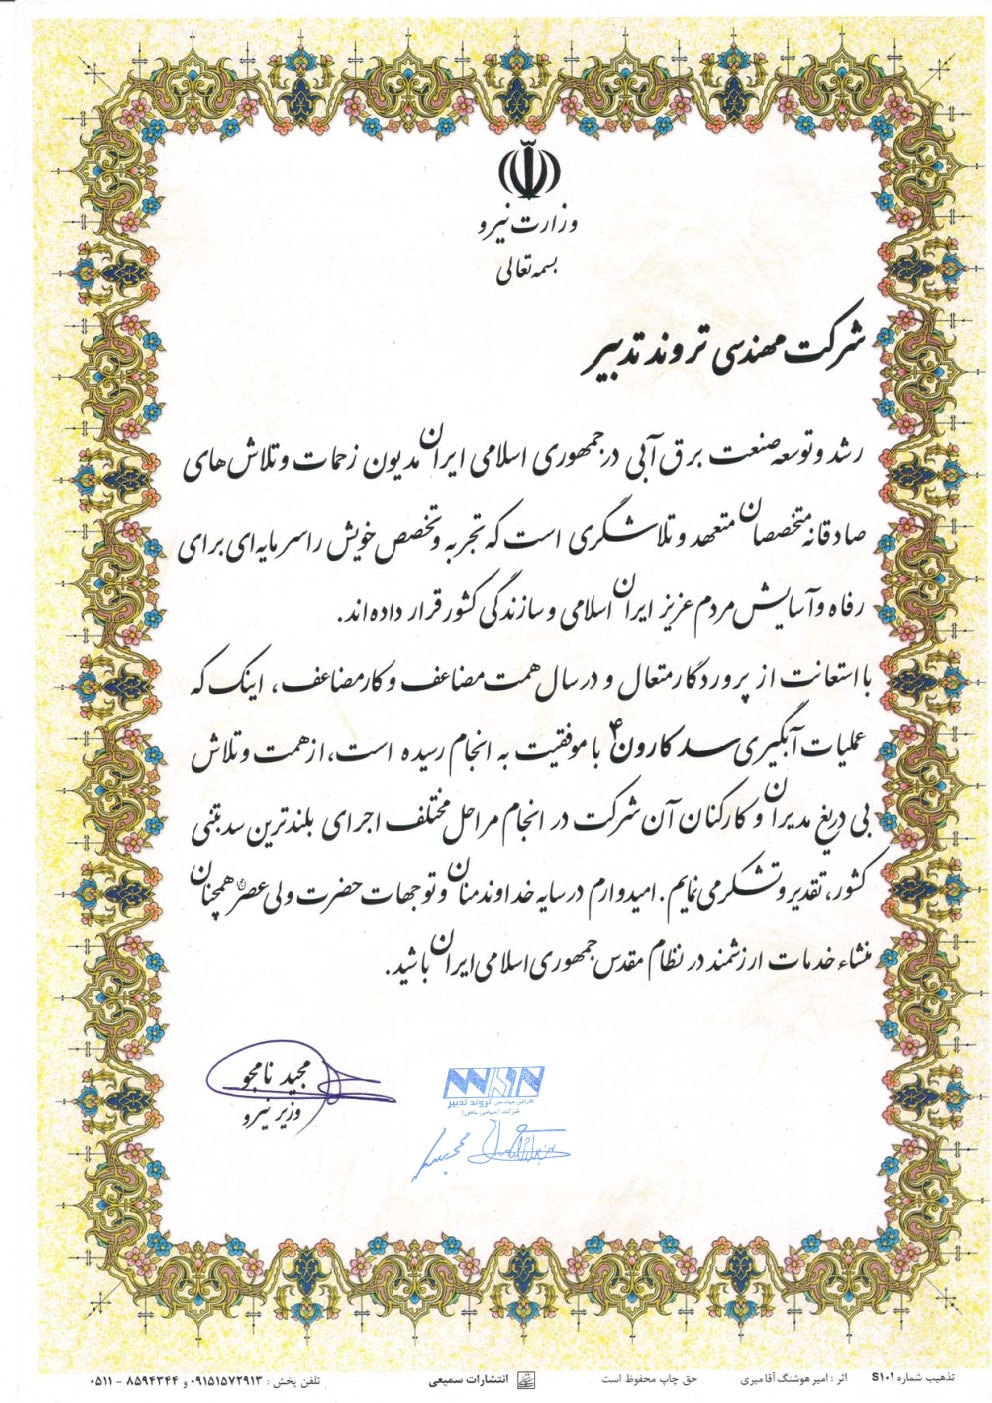 وزارت نیرو
بسمه تعالی
شرکت مهندسی تروند تدبیر
رشد و توسعه صنعت برق آبی در جمهوری اسلامی ایران مدیون زحمات و تلاش های
صادقانه متخصصان متعهد و تلاشگری است که تجربه و تخصص خویش را سرمایه ای برای
رفاه و آسایش مردم عزیز ایران اسلامی و سازندگی کشور قرار داده اند.
با استعانت از پروردگار متعال و در سال همت مضاعف و کار مضاعف، اینک که
عملیات آبگیری سد کارون ۴ با موفقیت به انجام رسیده است، از همت و تلاش
بی دریغ مدیران و کارکنان آن شرکت در انجام مراحل مختلف اجرای بلندترین سد بتنی
کشور، تقدیر و تشکر می نمایم. امیدوارم در سایه خداوند منان و توجهات حضرت ولی عصر همچنان
منشاء خدمات ارزشمند در نظام مقدس جمهوری اسلامی ایران باشید.
مجید نامجو
وزیر نیرو
تروند تدبیر
تذهیب شماره S۱۰۱ اثر : امیر هوشنگ آقامیری حق چاپ محفوظ است انتشارات سمیعی تلفن پخش : ۰۹۱۵۱۵۷۲۹۱۳ و ۸۵۹۴۳۴۴ - ۰۵۱۱